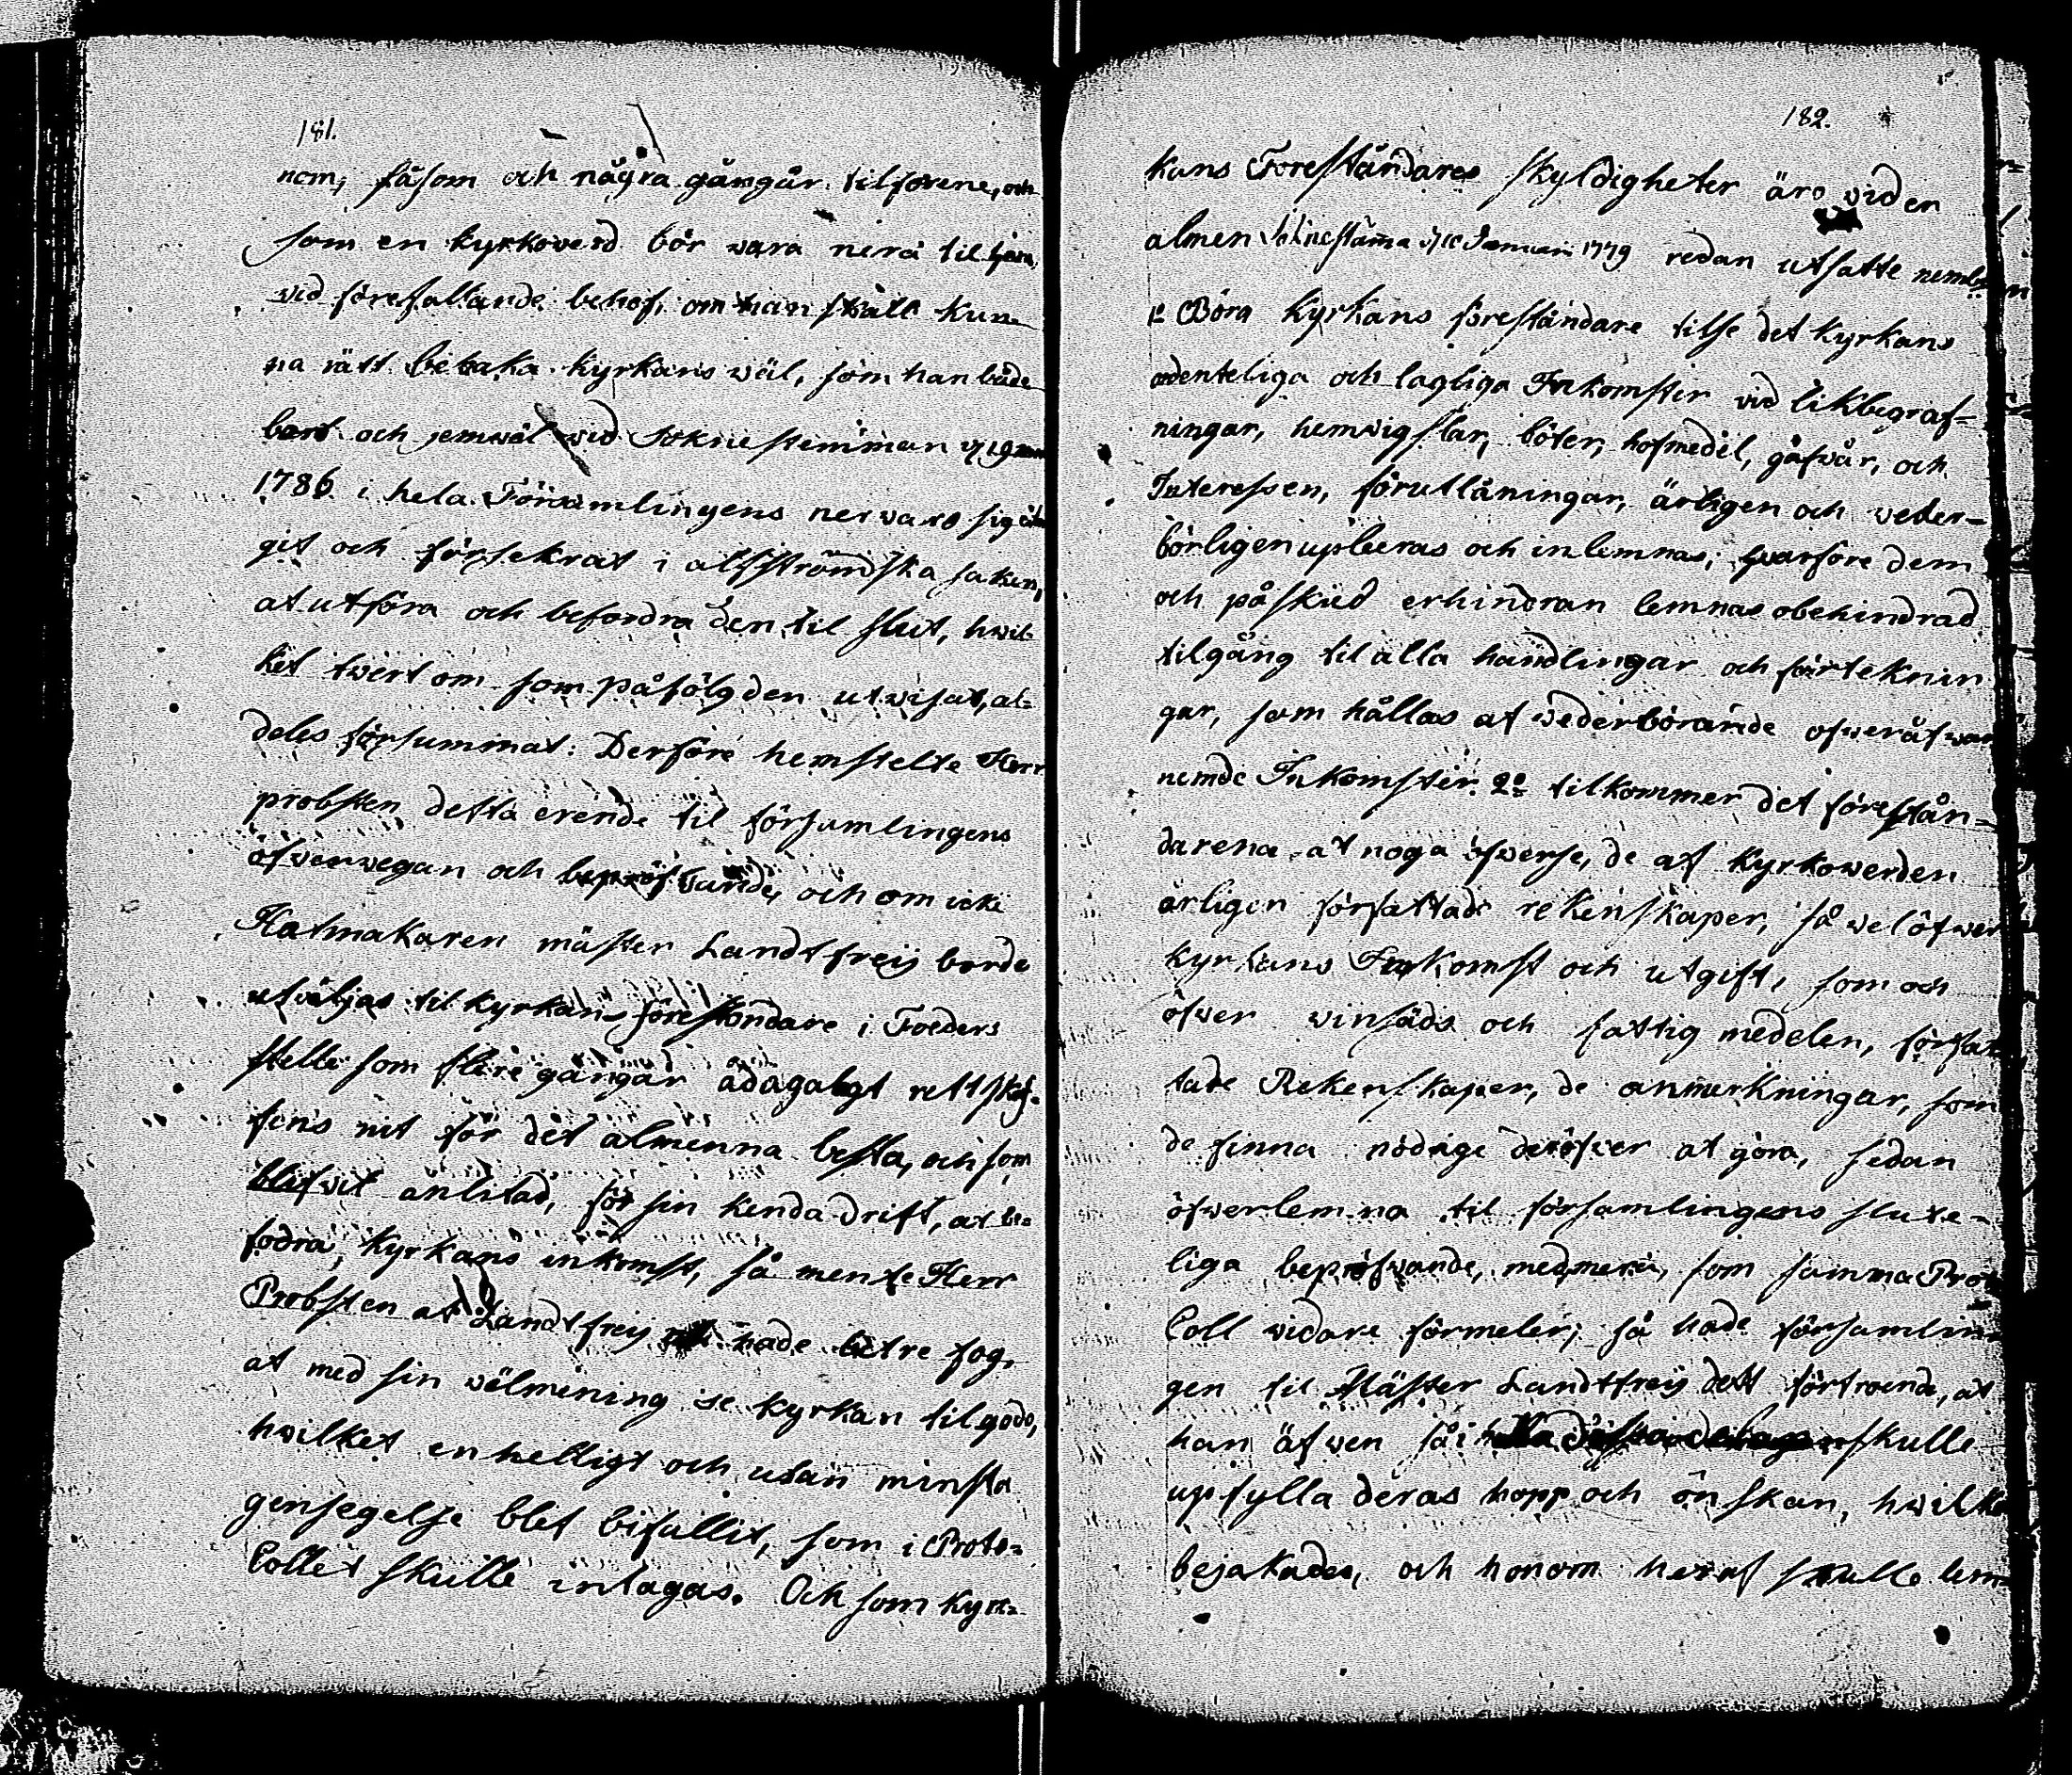 181.
nom, såsom och några gångår tilförene, och
som en kyrkoverd bör wara nera til tjena,
vid förefallande behof, om han skall kun-
na rätt bevaka kyrkans wäl, som han både
bart och jemwäl wid Soknestemman d 19
1786 i hela Församlingens nerwaro sig åta
git och försekrat i alfströmska saken,
at utföra och befordra den til slut, hwil-
ket twert om som påfölgden utwisat, al-
deles försummat. Derföre hemstelte Herr
probsten detta erende til församlingens
öfwerwegan och bepröfvande, och om icke
Hatmakaren mäster Landtfreij borde
utväljas til kyrkans föreståndare i Foeders
stelle som flere gångår ådagalagt rettskaf-
fens nit för det almenna besta, och som
blifvit anlitad, för sin kenda drift, at be-
fodra, kyrkans inkomst, så mente Herr
Probsten at Landtfreij hade betre fog,
at med sin wälmening se kyrkan tilgodo,
hvilket enhelligt och utan minsta
gensegelse blef bifallit, som i Proto-
Collet skulle intagas. Och som Kyrc-
182.
kans Foreståndares skyldigheter äro vid en
almen Soknestäma d 10 Januari 1779 redan utsatte neml.
1o Böra Kyrkans föreståndare tilse det kyrkans
ordenteliga och lagliga Inkomster vid likbegraf-
ningar, hemvigslar, böter, hofmedel, gåfvår, och
Interessen, förutlåningar, årligen och veder-
börligen upbeeras och inlemnas; hvarföre dem
och påskud erhindran lemnas obehindrad
tilgång til alla handlingar och förteknin
gar, som hållas af wederbörande ofwer åfwan
nemde Inkomster. 2o tilkommer det förestån-
darena at noga öfwerse, de af Kyrkowerden
årligen författade rekenskaper, så wel öfwer
kyrkans Inkomst och utgift, som och
öfwer vinsäds och fattig medelen, förfat
tade Rekenskaper, de anmerkningar, som
de finna nödige deröfver at göra, sedan
öfwerlemna til församlingens slute-
liga bepröfwande, med mera, som samma Proto
Coll vidare förmeler; så hade församlin
gen til Mäster Landtfreij dett förtroende, at
han äfwen så i skulle
upfylla deras hopp och önskan, hwilket
bejakades, och honom heraf skulle lem-